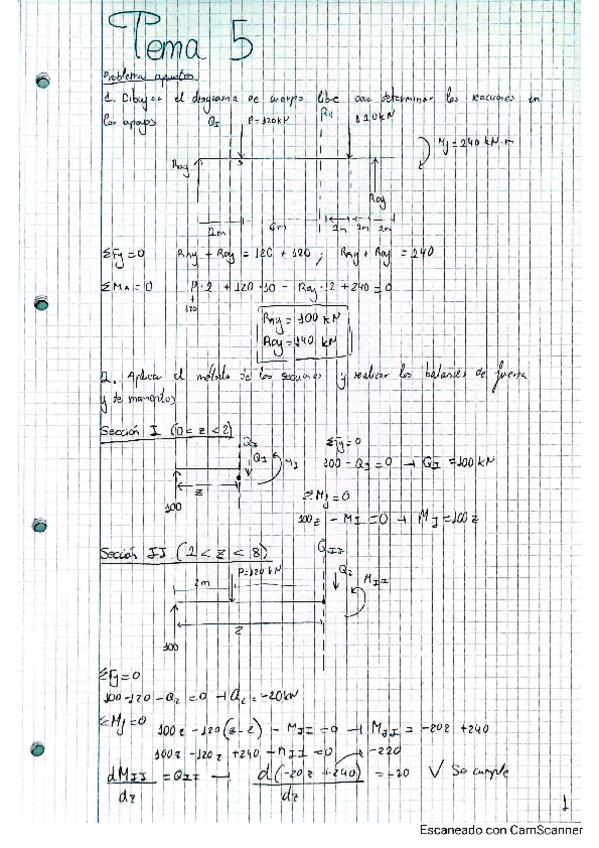 Tema 5
Problema apuntes
1. Dibujar el diagrama de cuerpo libre para determinar las reacciones en
los apoyos
P=120kN
120kN
M_J = 240 kN·m
R_Ay
2m
6m
2m 2m 2m
ΣFy=0 R_Ay + R_By = 120 + 120 ; R_Ay + R_By = 240
ΣM_A=0 P·2 + 120·10 - R_By·12 + 240 = 0
120
R_Ay = 100 kN
R_By = 140 kN
2. Aplicar el método de las secciones y realizar los balances de fuerza
y de momentos
Sección I (0 < z < 2)
Q_I
M_I
z
100
ΣFy=0
100 - Q_I = 0 → Q_I = 100 kN
ΣM_J=0
100z - M_I = 0 → M_I = 100z
Sección II (2 < z < 8)
Q_II
2m
P=120kN
Q_2
M_II
z
100
ΣFy=0
100 - 120 - Q_2 = 0 → Q_2 = -20kN
ΣM_J=0 100z - 120(z-2) - M_II = 0 → M_II = -20z + 240
100z - 120z + 240 - M_II = 0
dM_II/dz = Q_II → d(-20z + 240)/dz = -20 √ Se cumple
1
Escaneado con CamScanner